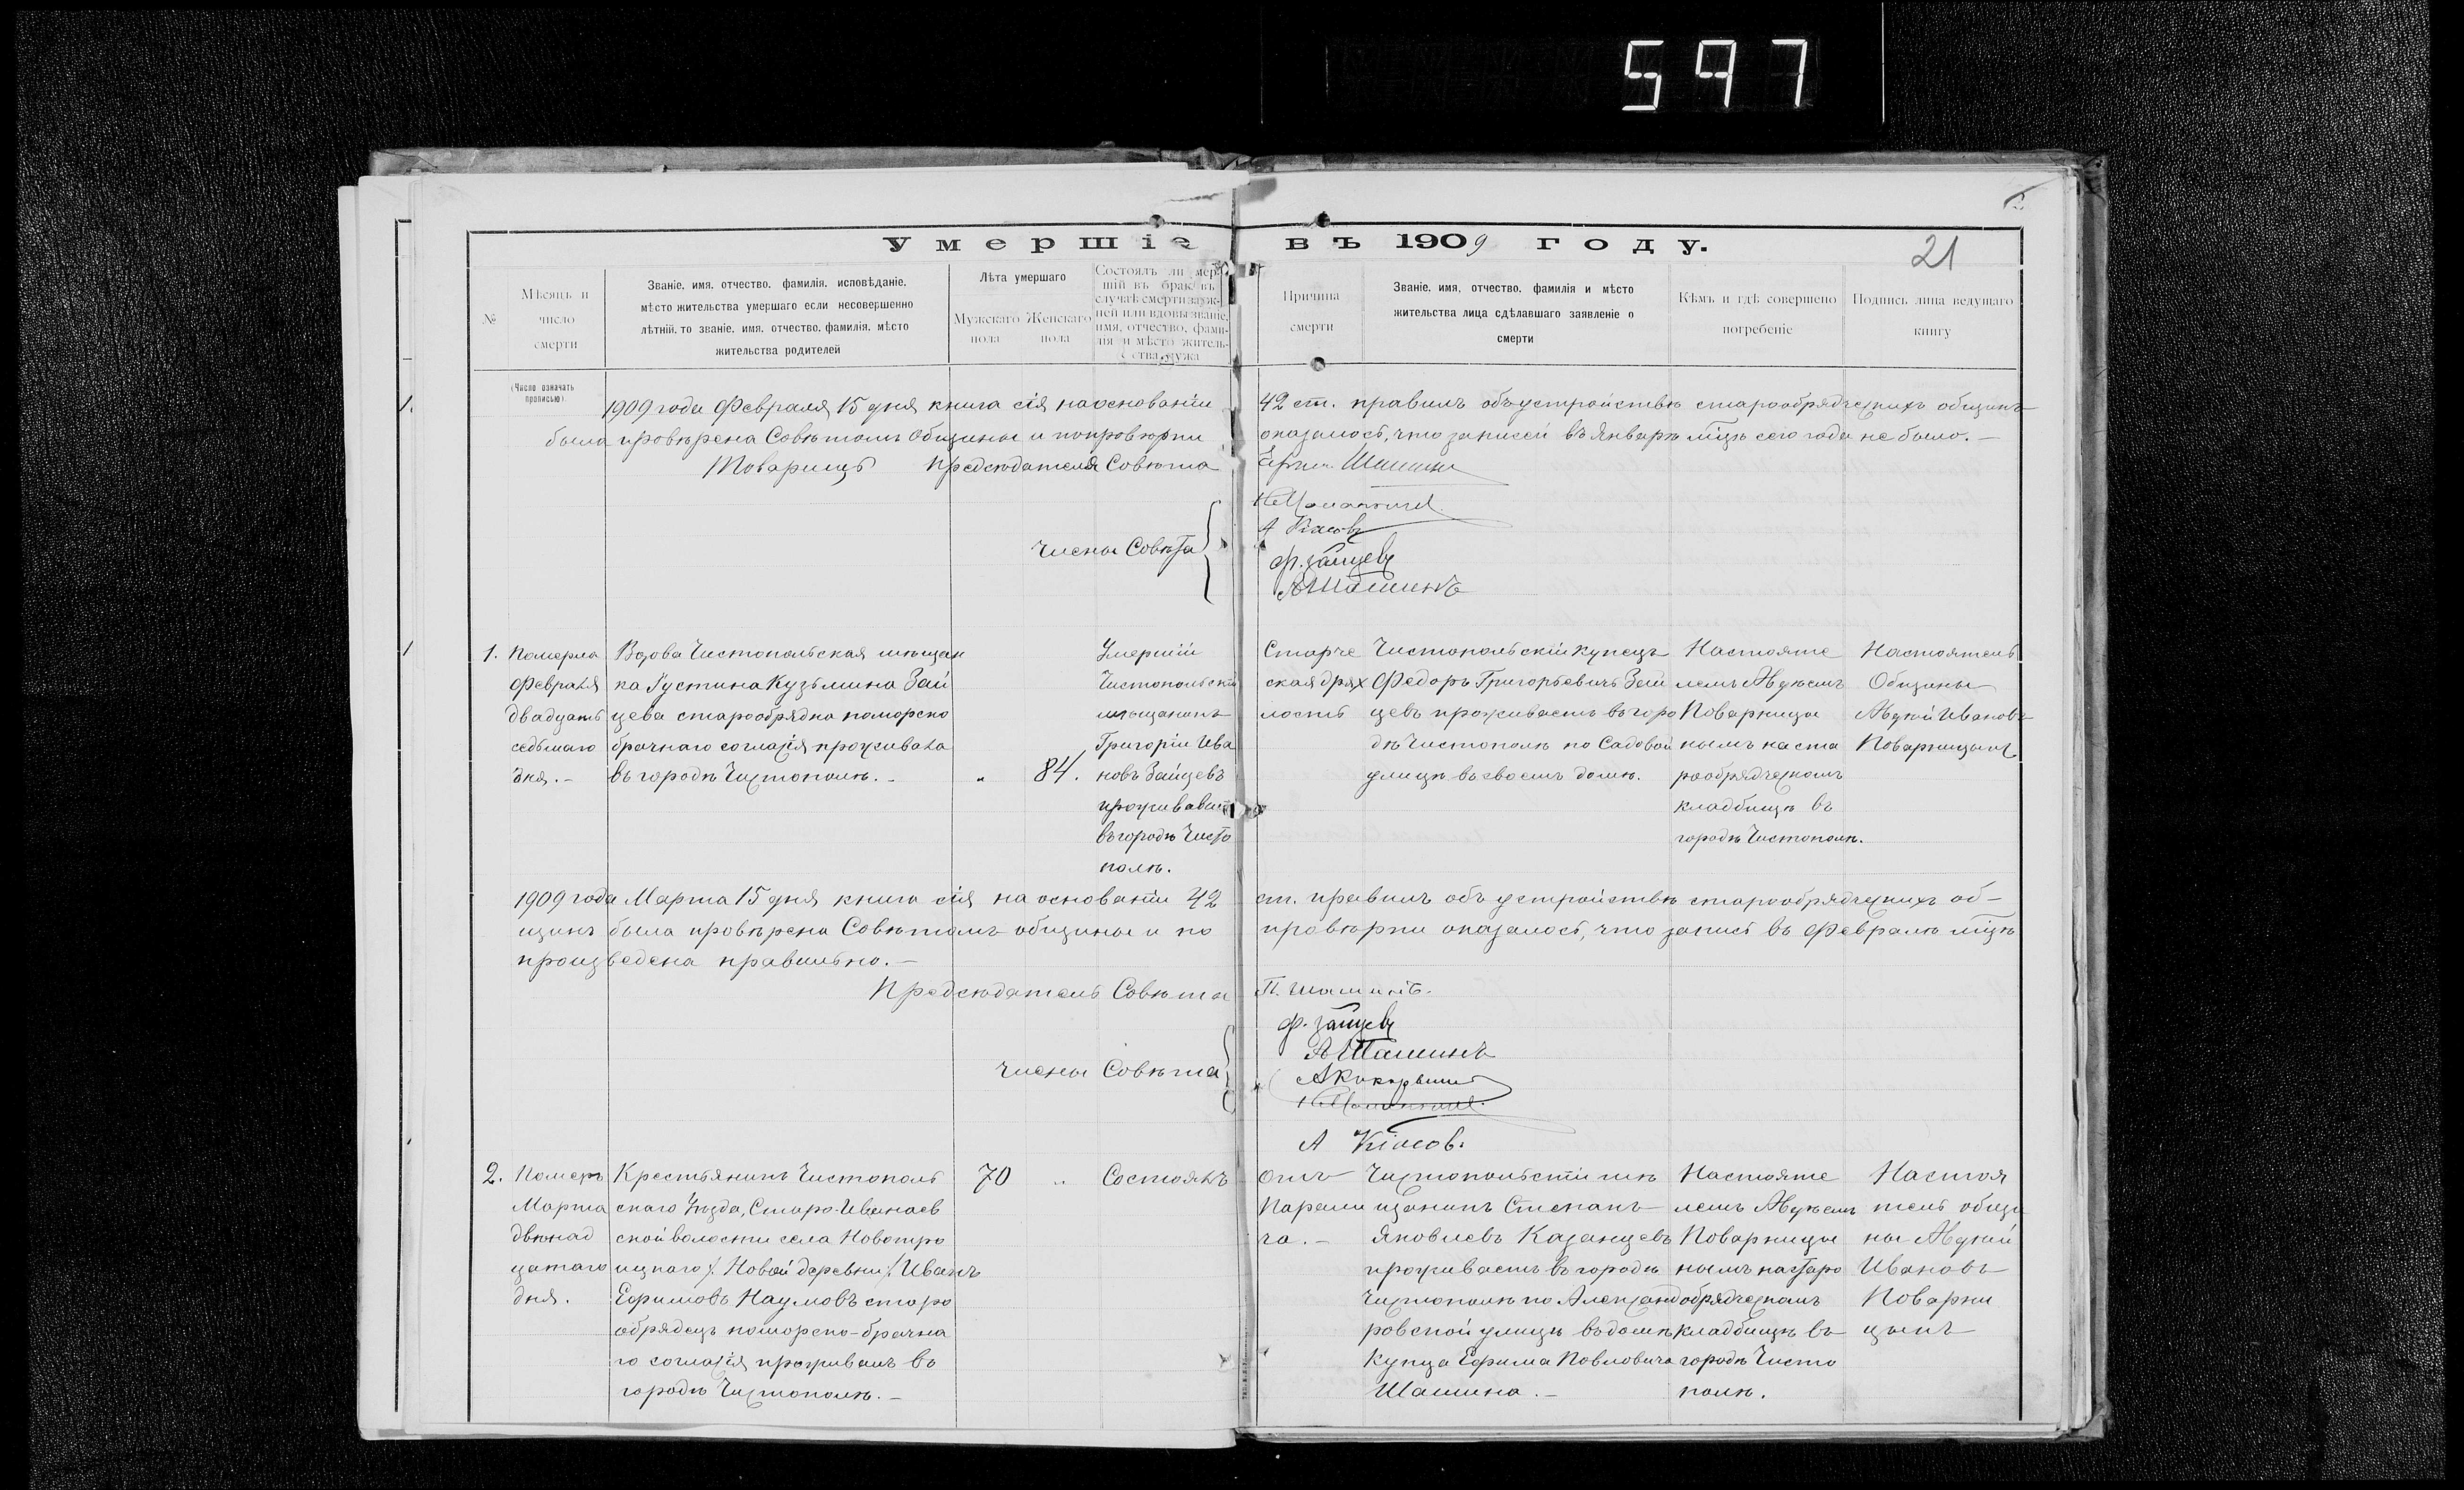 597
Умершіе въ 1909 году.
21
№
Мѣсяцъ и
число
смерти
Званіе, имя, отчество, фамилія, исповѣданіе,
мѣсто жительства умершаго если несовершенно
лѣтній, то званіе, имя, отчество, фамилія, мѣсто
жительства родителей
Лѣта умершаго
Мужскаго
пола
Женскаго
пола
Состоялъ ли умер-
шій въ бракѣ въ
случаѣ смерти замуж-
ней или вдовы званіе,
имя, отчество, фами-
лія и мѣсто житель-
ства мужа
Причина
смерти
Званіе, имя, отчество, фамилія и мѣсто
жительства лица сдѣлавшаго заявленіе о
смерти
Кѣмъ и гдѣ совершено
погребеніе
Подпись лица ведущаго
книгу
(Число означать
прописью).
1909 года Февраля 15 дня книга сія на основаніи 42 ст. правилъ объ устройствѣ старообрядческихъ общинъ
была провѣрена Совѣтомъ Общины и по провѣрки оказалось, что записей въ Январѣ мѣцѣ сего года не было. –
Товарищъ Предсѣдателя Совѣта
Шашинъ
Члены Совѣта
А Кіасовъ
Ф. Зайцевъ
А Шашинъ
1.
Померла
Февраля
двадцать
седьмаго
дня. –
Вдова Чистопольская мѣщан
ка Густина Кузьмина Зай
цева старообрядка поморско
брачнаго согласія проживала
въ городѣ Чистополѣ. –
„
84.
Умершій
Чистопольскій
мѣщанинъ
Григорій Ива
новъ Зайцевъ
проживавш
въ городѣ Чисто
полѣ.
Старче
ская дрях
лость
Чистопольскій купецъ
Федоръ Григорьевичъ Зай
цевъ проживаетъ въ горо
дѣ Чистополѣ по Садовой
улицѣ въ своемъ домѣ.
Настояте
лемъ Авдѣемъ
Поварницы
нымъ на ста
рообрядческомъ
кладбищѣ въ
городѣ Чистополѣ.
Настоятель
Общины
Авдѣй Ивановъ
Поварницынъ
1909 года Марта 15 дня книга сія на основаніи 42 ст. правилъ объ устройствѣ старообрядческихъ об-
щинъ была провѣрена Совѣтомъ общины и по провѣрки оказалось, что запись въ Февралѣ мѣцѣ
произведена правильно. –
Предсѣдатель Совѣта П. Шашинъ.
Члены Совѣта
Ф. Зайцевъ
А Шашинъ
А Кіасов.
2.
Померъ
Марта
двѣнад
цатаго
дня.
Крестьянинъ Чистополь
скаго Уѣзда, Старо-Иванаев
ской волости села Новотро
ицкаго /. Новой деревни /. Иванъ
Ефимовъ Наумовъ старо
обрядецъ поморско-брачна
го согласія проживалъ въ
городѣ Чистополѣ. –
70
„
Состоялъ
Отъ
Парали
ча. –
Чистопольскій мѣ
щанинъ Степанъ
Яковлевъ Казанцевъ
проживаетъ въ городѣ
Чистополѣ по Александ
ровской улицѣ въ домѣ
Купца Ефима Павловича
Шашина. –
Настояте
лемъ Авдѣемъ
Поварницы
нымъ на старо
обрядческомъ
кладбищѣ въ
городѣ Чисто
полѣ.
Настоя
тель общи
ны Авдѣй
Ивановъ
Поварни
цынъ